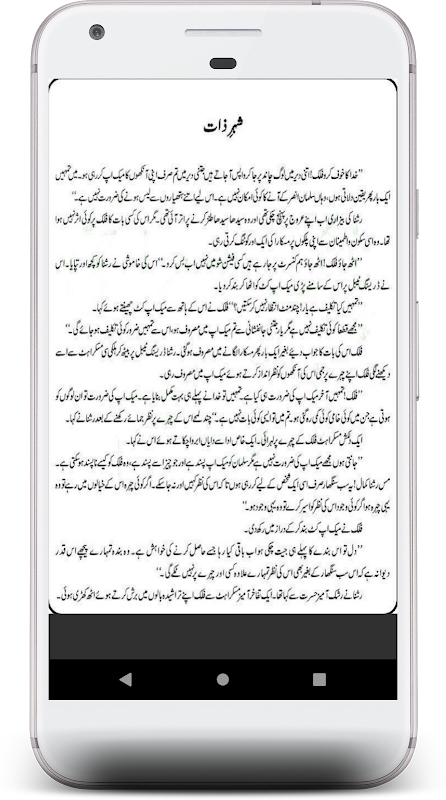 شہرِ ذات
’’خدا کا خوف کرو فلک! اتنی دیر میں لوگ چاند پر جا کر واپس آ جاتے ہیں جتنی دیر میں تم صرف اپنی آنکھوں کا میک اپ کر رہی ہو۔ میں تمہیں
ایک بار پھر یقین دلاتی ہوں، وہاں سلمان انصر کے آنے کا کوئی امکان نہیں ہے۔ اس لیے اتنے ہتھیاروں سے لیس ہونے کی ضرورت نہیں ہے۔‘‘
رشنا کی بیزاری اب اپنے عروج پر پہنچ چکی تھی اور وہ سیدھا سیدھا طنز کرنے پر اتر آئی تھی۔ مگر اس کی کسی بات کا فلک پر کوئی اثر نہیں ہوا
تھا۔ وہ اسی سکون و اطمینان سے اپنی پلکوں پر مسکارا کی ایک اور کوٹنگ کرتی رہی۔
’’اٹھ جاؤ فلک! اٹھ جاؤ ہم کنسرٹ پر جا رہے ہیں کسی فیشن شو میں نہیں اب بس کر دو۔‘‘ اس کی خاموشی نے رشنا کو کچھ اور تپایا۔ اس
نے ڈریسنگ ٹیبل پر اس کے سامنے پڑی میک اپ کٹ کو اٹھا کر بند کر دیا۔
’’تمہیں کیا تکلیف ہے یار! چند منٹ انتظار نہیں کر سکتیں؟‘‘ فلک نے اس کے ہاتھ سے میک اپ کٹ چھینتے ہوئے کہا۔
’’مجھے قطعاً کوئی تکلیف نہیں ہے مگر یار جتنی جانفشانی سے تم میک اپ میں مصروف ہو، اس سے تمہیں ضرور کوئی تکلیف ہو جائے گی۔‘‘
فلک اس کی بات کا جواب دیے بغیر ایک بار پھر مسکارا لگانے میں مصروف ہو گئی۔ رشنا ڈریسنگ ٹیبل پر بیٹھ کر ہلکی سی مسکراہٹ سے اسے
دیکھنے لگی فلک اپنے چہرے پر جمی اس کی آنکھوں کو نظر انداز کرتے ہوئے میک اپ میں مصروف رہی۔
’’فلک! تمہیں آخر میک اپ کی ضرورت ہی کیا ہے۔ تمہیں تو خدا نے پہلے ہی بہت مکمل بنایا ہے۔ میک اپ کی ضرورت تو ان لوگوں کو
ہوتی ہے جن میں کوئی خامی کوئی کمی رہ گئی ہو۔ تم میں تو ایسی کوئی بات نہیں ہے۔‘‘ چند لمحے اس کے چہرے پر نظر جمائے رکھنے کے بعد رشنا نے کہا۔
ایک دلکش مسکراہٹ فلک کے چہرے پر لہرائی۔ ایک خاص ادا سے دایاں ابرو اچکاتے ہوئے اس نے کہا۔
’’جانتی ہوں مجھے میک اپ کی ضرورت نہیں ہے مگر سلمان کو میک اپ پسند ہے اور جو چیز اسے پسند ہے، وہ فلک کو کیسے ناپسند ہو سکتی ہے۔
مس رشنا کمال! یہ سب سنگھار صرف اسی ایک شخص کے لیے کر رہی ہوں تاکہ اس کی نظر کہیں اور نہ جا سکے۔ اگر کوئی چہرہ اس کے خیالوں میں رہے تو وہ
یہی چہرہ ہو اگر کوئی وجود اس کی نظر کو اسیر کرے تو وہ یہی وجود ہو۔‘‘
فلک نے میک اپ کٹ بند کر کے دراز میں رکھ دی۔
’’دل تو اس بندے کا پہلے ہی جیت چکی ہو اب باقی کیا رہا جسے حاصل کرنے کی خواہش ہے۔ وہ بندہ تمہارے پیچھے اس قدر
دیوانہ ہے کہ اس سب سنگھار کے بغیر بھی اس کی نظر تمہارے علاوہ کسی اور چہرے پر نہیں ٹکے گی۔‘‘
رشنا نے رشک آمیز حسرت سے کہا تھا۔ ایک تفاخر آمیز مسکراہٹ سے فلک اپنے تراشیدہ بالوں میں برش کرتے ہوئے اٹھ کھڑی ہوئی۔